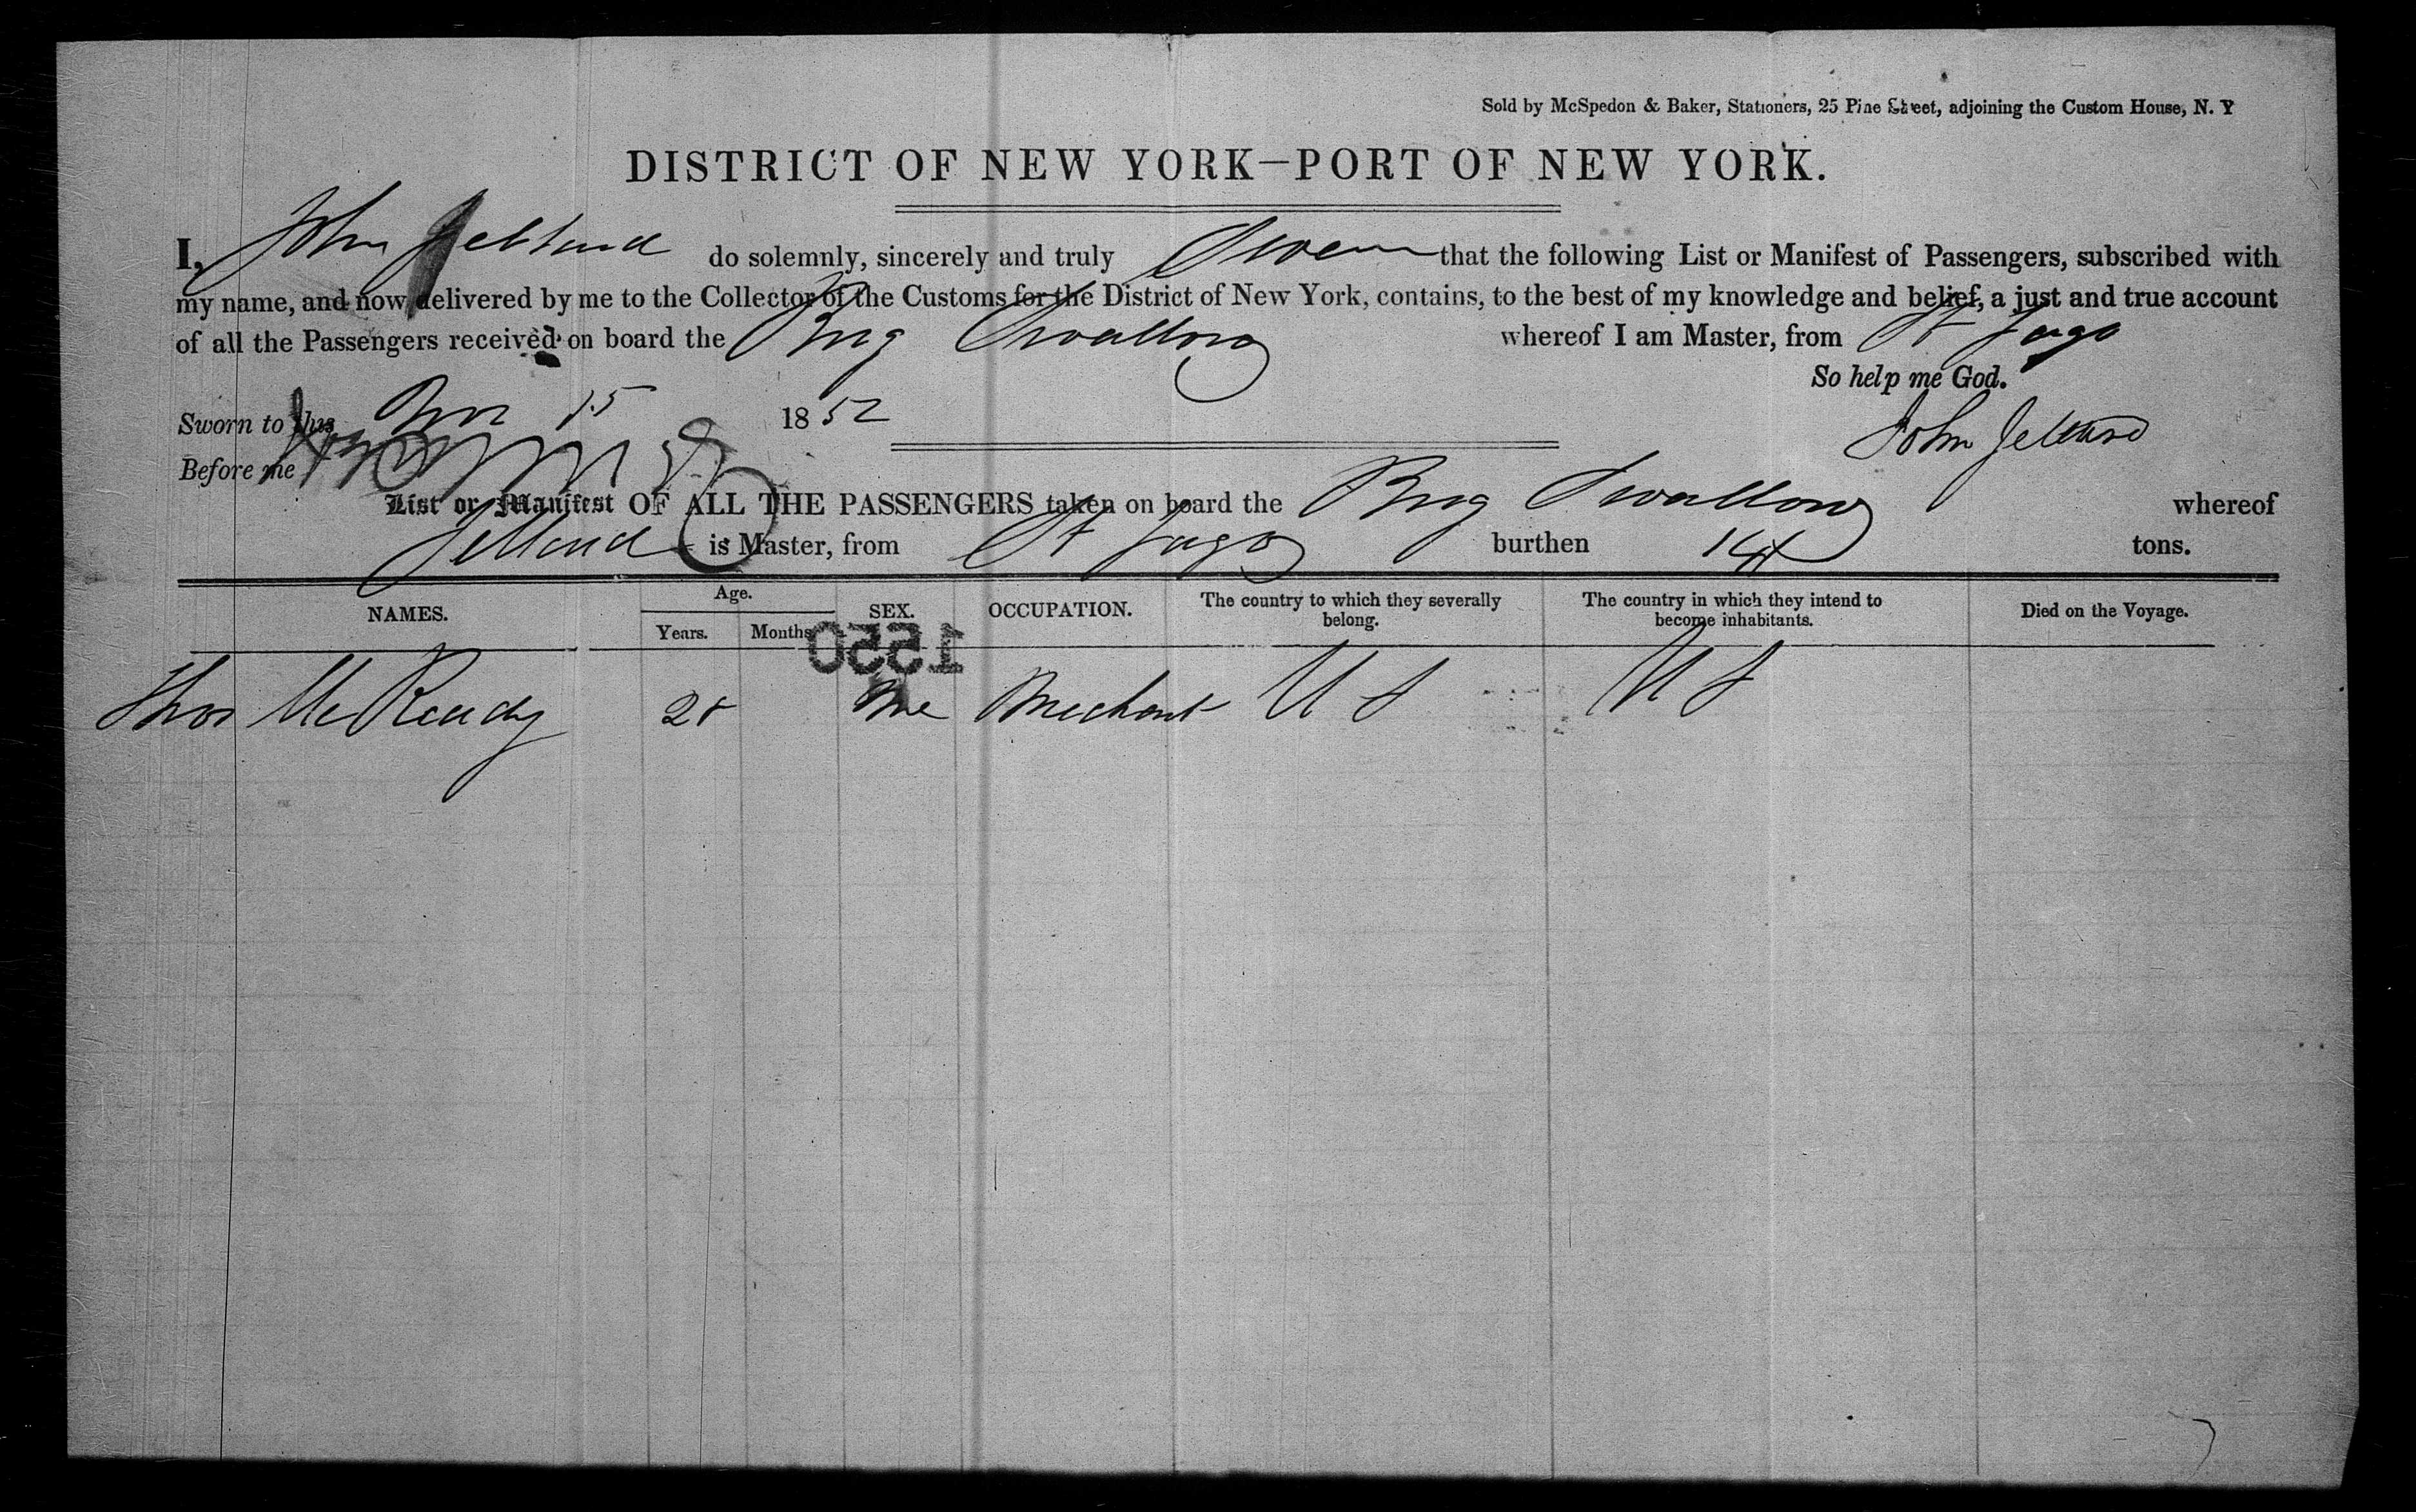 Sold by McSpedon & Baker, Stationers, 25 Pine Street, adjoining the Custom House, N. Y
DISTRICT OF NEW YORK—PORT OF NEW YORK.
I, John do solemnly, sincerely and truly Swear that the following List or Manifest of Passengers, subscribed with
my name, and now delivered by me to the Collector of the Customs for the District of New York, contains, to the best of my knowledge and belief, a just and true account
of all the Passengers received on board the Brig Swallow whereof I am Master, from St Jago
So help me God.
Sworn to this Nov 15 1852
John
Before me
List or Manifest OF ALL THE PASSENGERS taken on board the Brig Swallow whereof
is Master, from St Jago burthen tons.
NAMES. Age. Years. Months SEX. OCCUPATION. The country to which they severally belong. The country in which they intend to become inhabitants. Died on the Voyage.
1550
Thos McReady Me Merchant U S U S